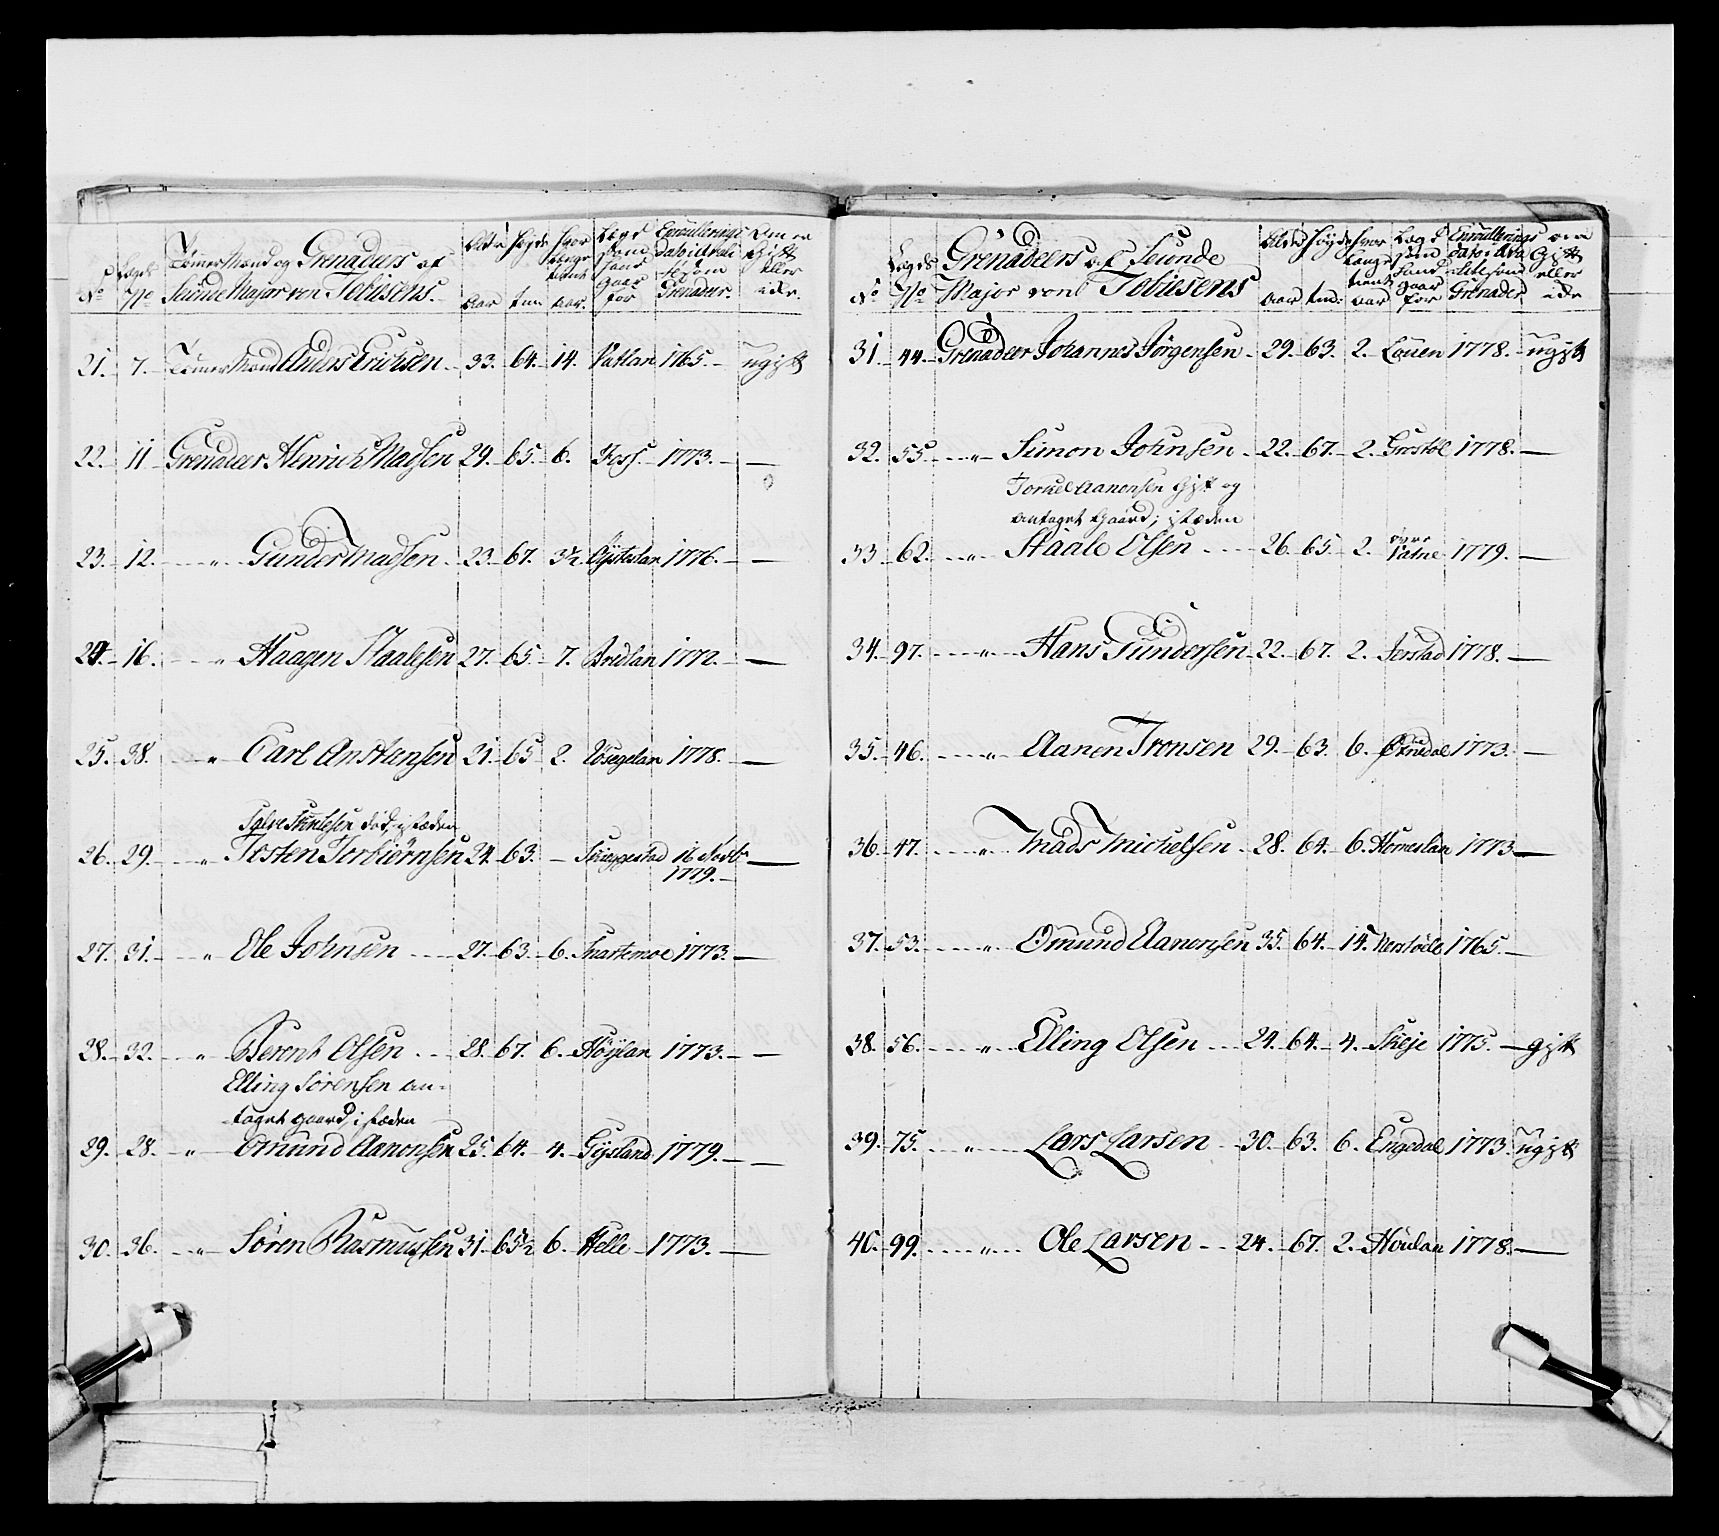 No Lægds No Tømermænd og Grenadeers af Seiunde Major von Tebiesens. Alder aar Høyde tm: hvor lenge tient aar. Lægd som hand gaar for Enrullerings Dato Grenader. Om er Gift eller ide.
21. 7. Tømermand Anders Erichsen 33. 64. 14. Vatlan 1765. ugift
22. 11 Grenadeer Henrich Madsen 29. 65. 6. Foss. 1773. —
23. 12. " Gunder Madsen 23. 67. 3½ Øysteslan 1776. —
24. 16. " Haagen Staalesen 27. 65. 7. Bridlan 1772. —
25. 38. " Carl Anstensen 21. 65 2. Røsegelan 1778. —
død, i stæden
26. 29. " Tosten Torbiørnsen 24. 63. — Skieggestad 16 1779.
27. 31. " Ole Johnsen 27. 63. 6. Snartemoe 1773. —
28. 32. " Berent Olsen 28. 67. 6. Høylan 1773. —
Elling Sørensen an-
taget gaard, i stæden
29. 28. " Omund Aanonsen 25. 64. 4. Gysland 1779. —
30. 36. " Søren Rasmussen 31. 65½ 6. Helle 1773. —
No Lægds No Grenadeers af Seiunde Major von Tebiesens Alder aar Høyde tm: hvor lenge tient aar Lægd som hand gaar for Enrullerings Dato Grenader om Gift eller ide
31. 44. Grenadeer Johannes Jørgensen 29. 63. 2. Louen 1778. ugift
32. 55. " Simon Johnsen 22. 67. 2. 1778. —
Torkel Aanonsen Gift og
antaget Gaard; i stæden
33 62. " Staale Olsen 26. 65. 2. øvre Vatne 1779. —
34. 97. " Hans Gundersen 22. 67. 2. Jerstad 1778. —
35. 46. " Aanen Tronsen 29. 63. 6. 1773. —
36. 47. " Mads Michelsen 28. 64. 6. Homeslan 1773 —
37. 53. " Omund Aanonsen 35. 64. 14. 1765. —
38. 56. " Elling Olsen 24. 64. 4. Skeje 1775. gift
39. 75. " Lars Larsen 30. 63. 6. Engedal 1773 ugift
40. 99. " Ole Larsen 24. 67. 2. Houlan 1778. —